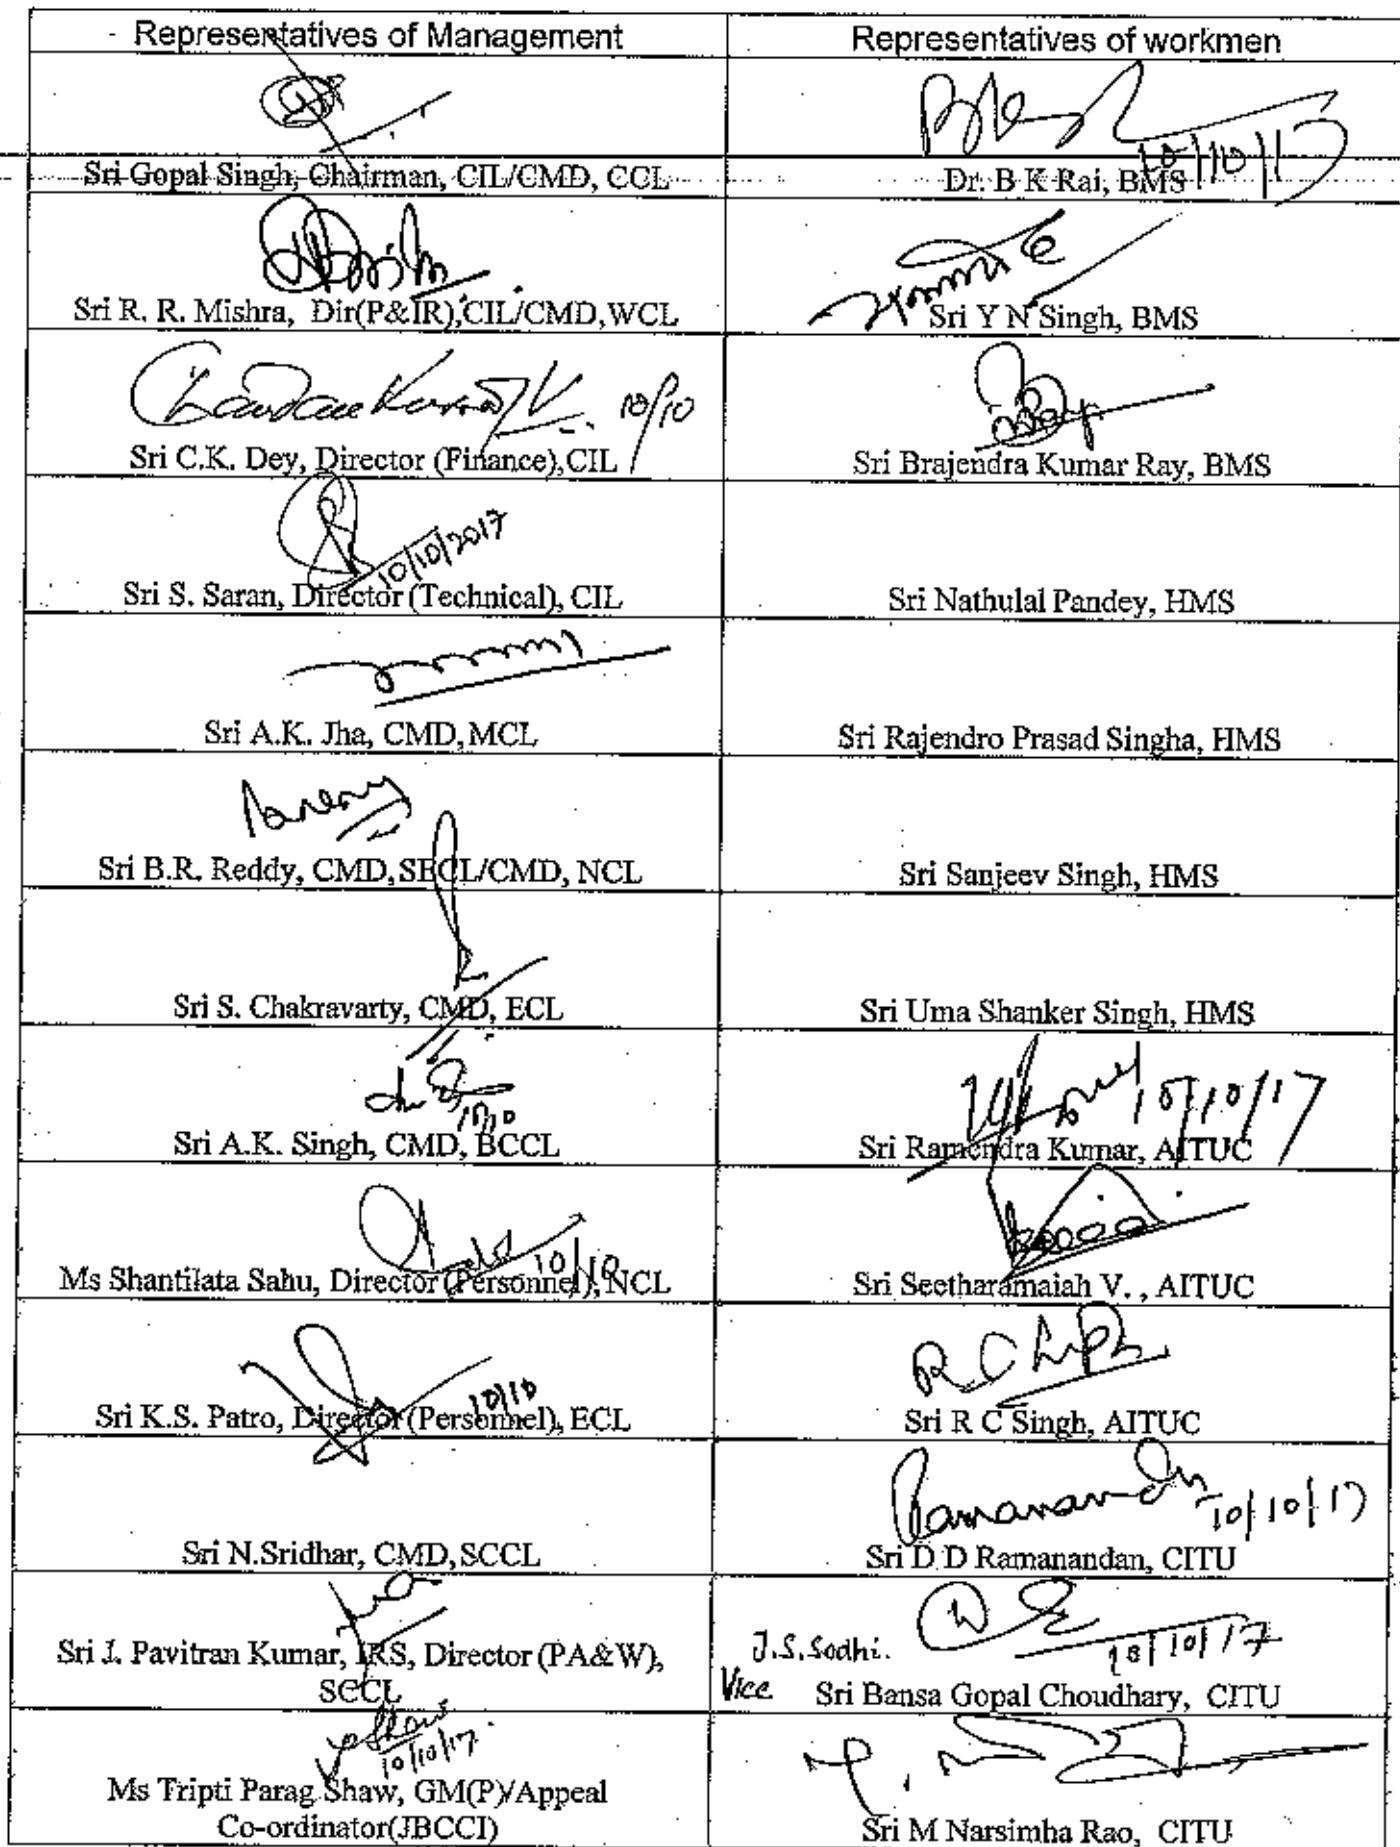 Representatives of Management
Representatives of workmen
Sri Gopal Singh, Chairman, CIL/CMD, CCL
10/10/17
Dr. B K Rai, BMS
Sri R. R. Mishra, Dir(P&IR),CIL/CMD,WCL
Sri Y N Singh, BMS
10/10
Sri C.K. Dey, Director (Finance),CIL
Sri Brajendra Kumar Ray, BMS
10/10/2017
Sri S. Saran, Director (Technical), CIL
Sri Nathulal Pandey, HMS
Sri A.K. Jha, CMD, MCL
Sri Rajendro Prasad Singha, HMS
Sri B.R. Reddy, CMD, SECL/CMD, NCL
Sri Sanjeev Singh, HMS
Sri S. Chakravarty, CMD, ECL
Sri Uma Shanker Singh, HMS
10/10
Sri A.K. Singh, CMD, BCCL
10/10/17
Sri Ramendra Kumar, AITUC
10/10
Ms Shantilata Sahu, Director (Personnel), NCL
Sri Seetharamaiah V. , AITUC
10/10
Sri K.S. Patro, Director (Personnel), ECL
Sri R C Singh, AITUC
Sri N.Sridhar, CMD, SCCL
10/10/17
Sri D D Ramanandan, CITU
Sri J. Pavitran Kumar, IRS, Director (PA&W),
SCCL
J.S.Sodhi.
10/10/17
Vice Sri Bansa Gopal Choudhary, CITU
10/10/17.
Ms Tripti Parag Shaw, GM(P)/Appeal
Co-ordinator(JBCCI)
Sri M Narsimha Rao, CITU